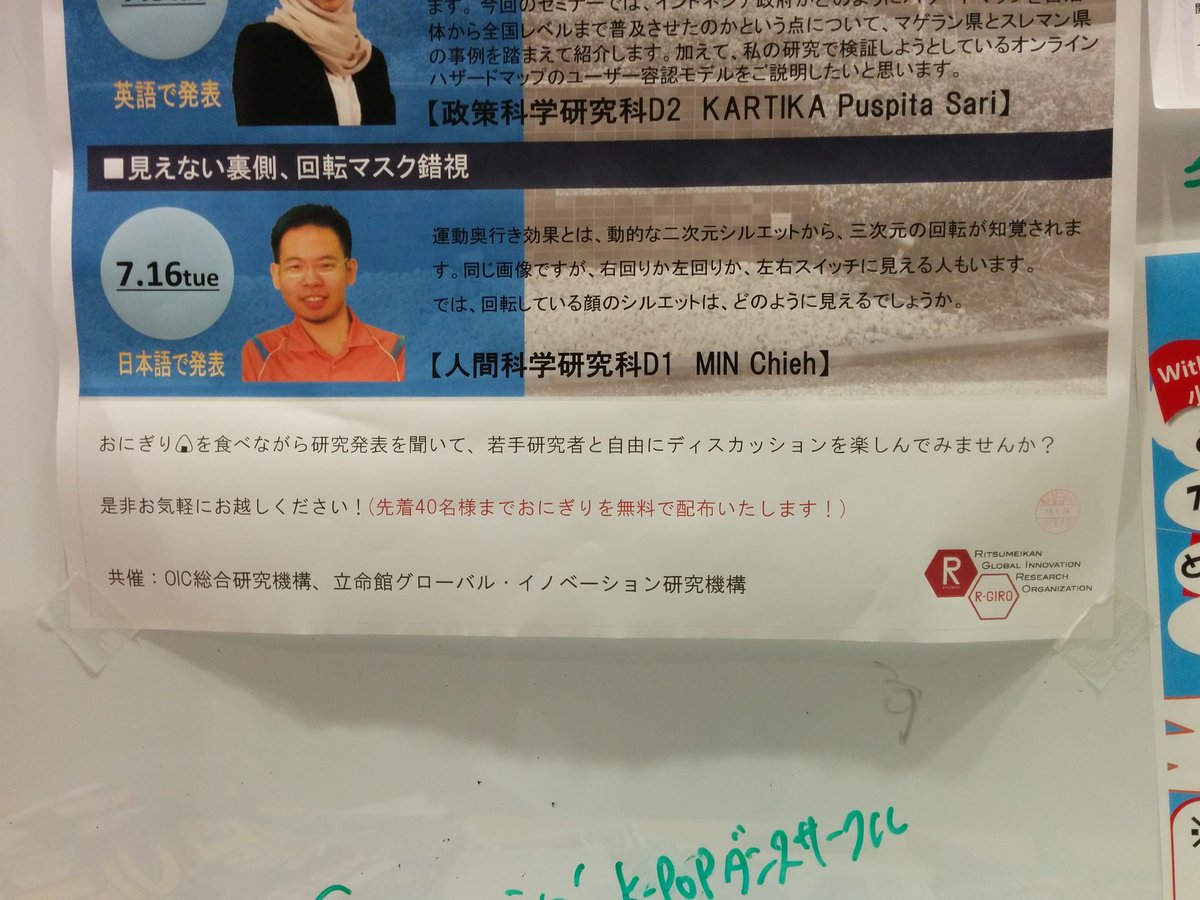 体から全国レベルまで普及させたのかという点について、マゲラン県とスレマン県
の事例を踏まえて紹介します。加えて、私の研究で検証しようとしているオンライン
ハザードマップのユーザー容認モデルをご説明したいと思います。
英語で発表
【政策科学研究科D2 KARTIKA Puspita Sari】
■見えない裏側、回転マスク錯視
7.16tue
日本語で発表
運動奥行き効果とは、動的な二次元シルエットから、三次元の回転が知覚されま
す。同じ画像ですが、右回りか左回りか、左右スイッチに見える人もいます。
では、回転している顔のシルエットは、どのように見えるでしょうか。
【人間科学研究科D1 MIN Chieh】
おにぎり🍙を食べながら研究発表を聞いて、若手研究者と自由にディスカッションを楽しんでみませんか？
是非お気軽にお越しください！(先着40名様までおにぎりを無料で配布いたします！)
共催：OIC総合研究機構、立命館グローバル・イノベーション研究機構
R
R-GIRO
RITSUMEIKAN
GLOBAL INNOVATION
RESEARCH
ORGANIZATION
K-POPダンスサークル
With